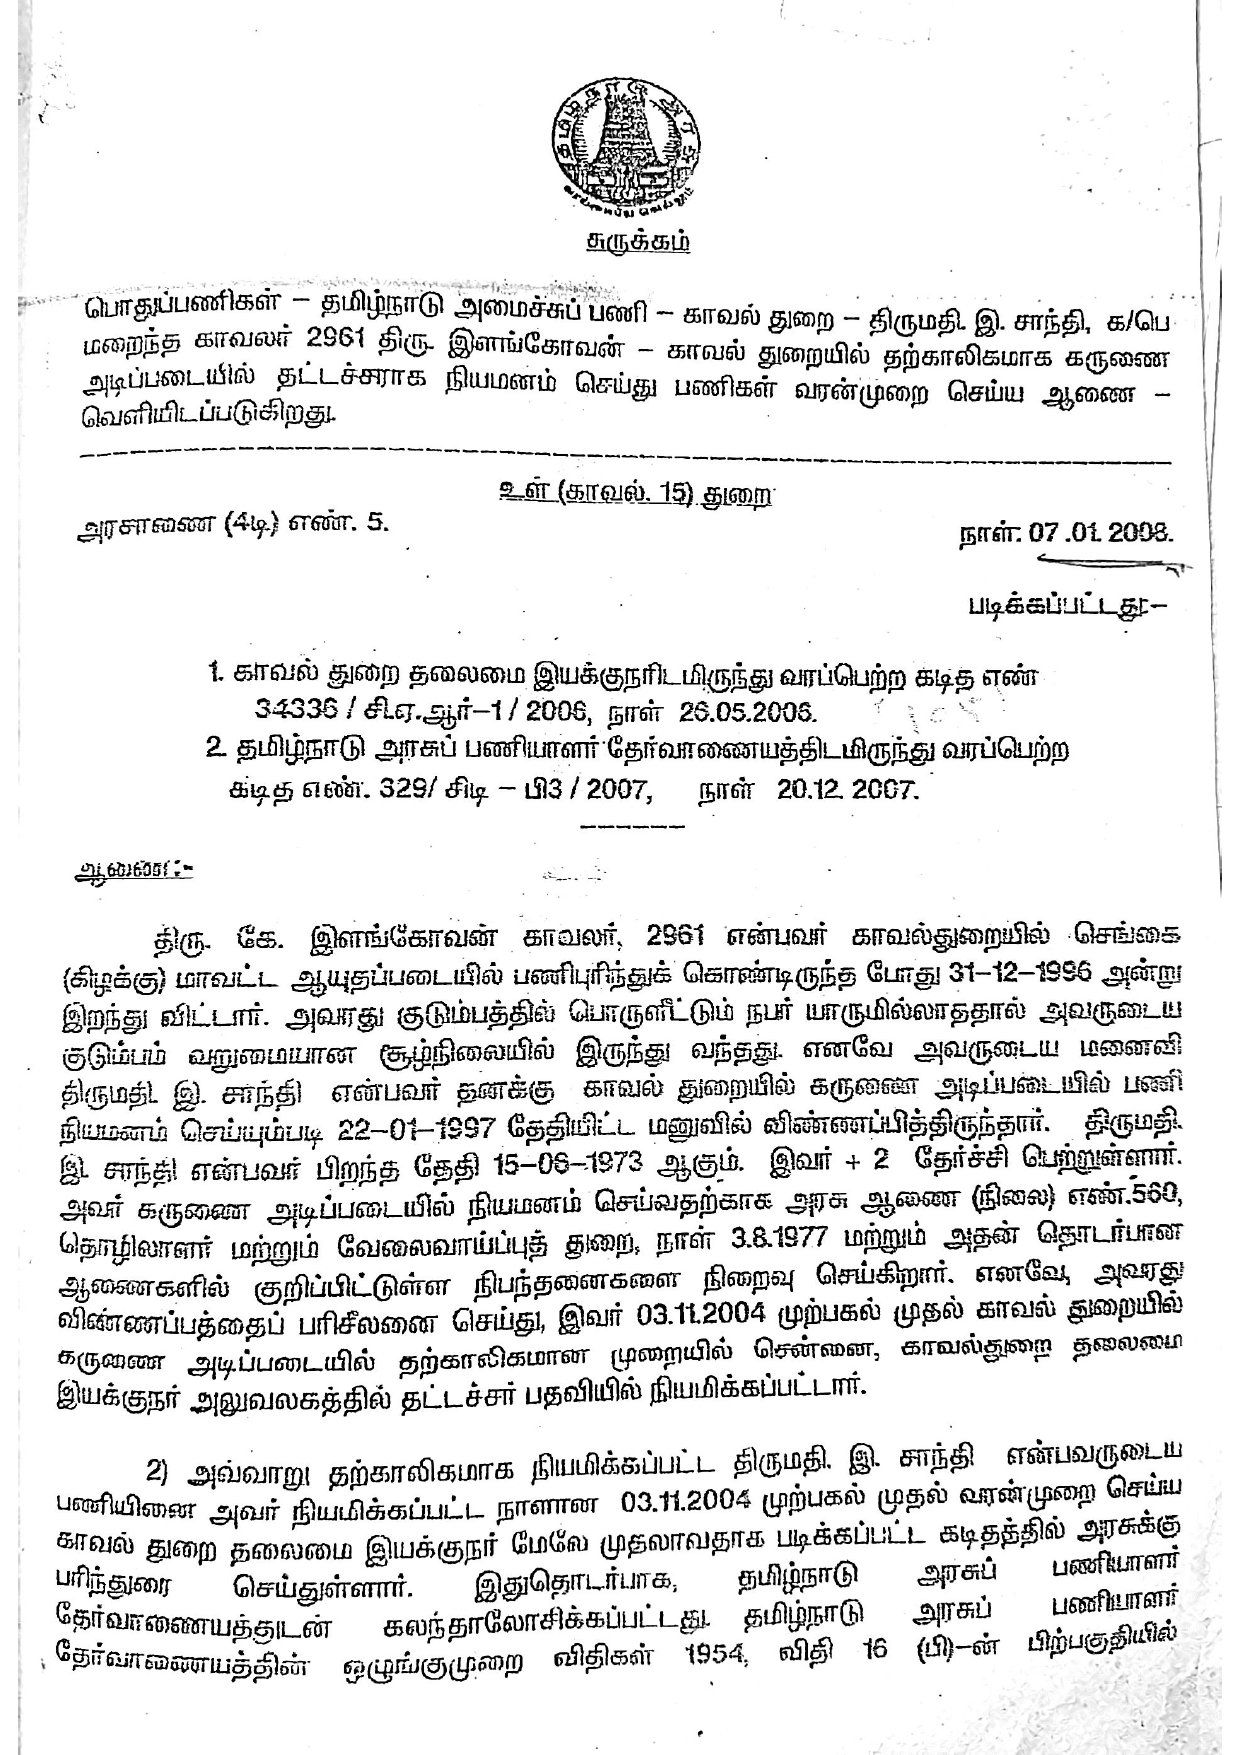 தமிழ்நாடு அரசு
வாய்மையே வெல்லும்
சுருக்கம்
பொதுப்பணிகள் – தமிழ்நாடு அமைச்சுப் பணி – காவல் துறை – திருமதி. இ. சாந்தி, க/பெ
மறைந்த காவலர் 2961 திரு. இளங்கோவன் – காவல் துறையில் தற்காலிகமாக கருணை
அடிப்படையில் தட்டச்சராக நியமனம் செய்து பணிகள் வரன்முறை செய்ய ஆணை –
வெளியிடப்படுகிறது.
உள் (காவல். 15) துறை
அரசாணை (4டி) எண். 5.
நாள்: 07 .01. 2008.
படிக்கப்பட்டது:–
1. காவல் துறை தலைமை இயக்குநரிடமிருந்து வரப்பெற்ற கடித எண்
34336 / சி.ஏ.ஆர்–1 / 2006, நாள் 26.05.2006.
2. தமிழ்நாடு அரசுப் பணியாளர் தேர்வாணையத்திடமிருந்து வரப்பெற்ற
கடித எண். 329/ சிடி – பி3 / 2007, நாள் 20.12. 2007.
ஆணை:-
திரு. கே. இளங்கோவன் காவலர், 2961 என்பவர் காவல்துறையில் செங்கை
(கிழக்கு) மாவட்ட ஆயுதப்படையில் பணிபுரிந்துக் கொண்டிருந்த போது 31–12–1996 அன்று
இறந்து விட்டார். அவரது குடும்பத்தில் பொருளீட்டும் நபர் யாருமில்லாததால் அவருடைய
குடும்பம் வறுமையான சூழ்நிலையில் இருந்து வந்தது. எனவே அவருடைய மனைவி
திருமதி. இ. சாந்தி என்பவர் தனக்கு காவல் துறையில் கருணை அடிப்படையில் பணி
நியமனம் செய்யும்படி 22–01–1997 தேதியிட்ட மனுவில் விண்ணப்பித்திருந்தார். திருமதி.
இ. சாந்தி என்பவர் பிறந்த தேதி 15–06–1973 ஆகும். இவர் + 2 தேர்ச்சி பெற்றுள்ளார்.
அவர் கருணை அடிப்படையில் நியமனம் செய்வதற்காக அரசு ஆணை (நிலை) எண்.560,
தொழிலாளர் மற்றும் வேலைவாய்ப்புத் துறை, நாள் 3.8.1977 மற்றும் அதன் தொடர்பான
ஆணைகளில் குறிப்பிட்டுள்ள நிபந்தனைகளை நிறைவு செய்கிறார். எனவே, அவரது
விண்ணப்பத்தைப் பரிசீலனை செய்து, இவர் 03.11.2004 முற்பகல் முதல் காவல் துறையில்
கருணை அடிப்படையில் தற்காலிகமான முறையில் சென்னை, காவல்துறை தலைமை
இயக்குநர் அலுவலகத்தில் தட்டச்சர் பதவியில் நியமிக்கப்பட்டார்.
2) அவ்வாறு தற்காலிகமாக நியமிக்கப்பட்ட திருமதி. இ. சாந்தி என்பவருடைய
பணியினை அவர் நியமிக்கப்பட்ட நாளான 03.11.2004 முற்பகல் முதல் வரன்முறை செய்ய
காவல் துறை தலைமை இயக்குநர் மேலே முதலாவதாக படிக்கப்பட்ட கடிதத்தில் அரசுக்கு
பரிந்துரை செய்துள்ளார். இதுதொடர்பாக, தமிழ்நாடு அரசுப் பணியாளர்
தேர்வாணையத்துடன் கலந்தாலோசிக்கப்பட்டது. தமிழ்நாடு அரசுப் பணியாளர்
தேர்வாணையத்தின் ஒழுங்குமுறை விதிகள் 1954, விதி 16 (பி)–ன் பிற்பகுதியில்